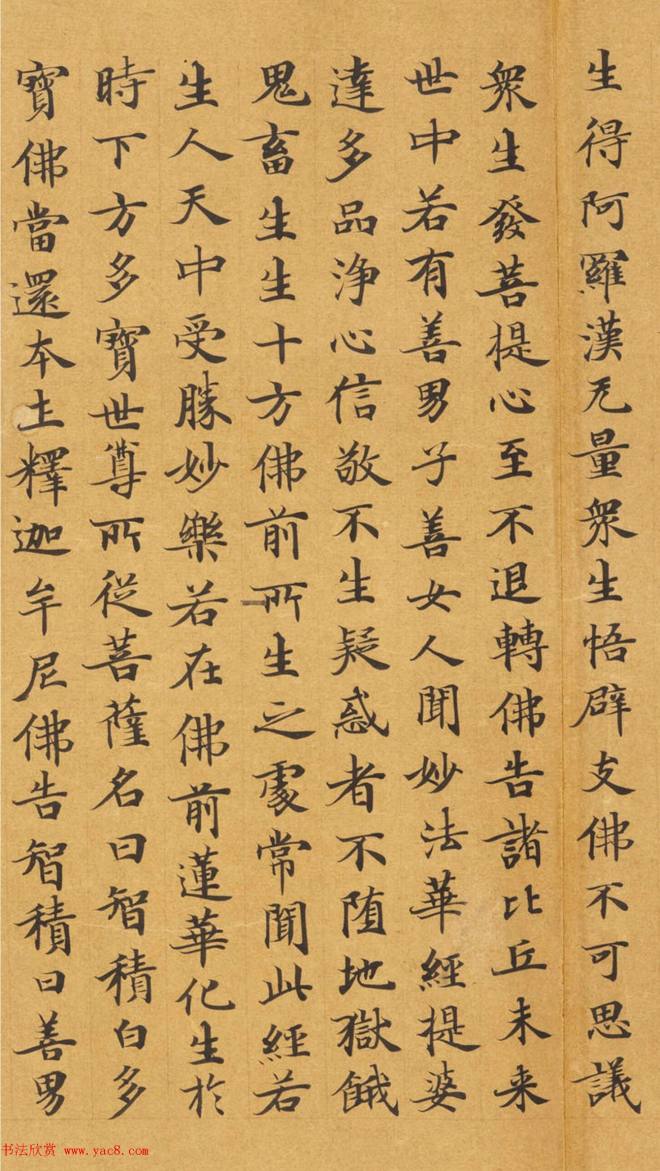 生得阿羅漢无量衆生悟辟支佛不可思議
衆生發菩提心至不退轉佛告諸比丘未来
世中若有善男子善女人聞妙法華經提婆
達多品浄心信敬不生疑惑者不堕地獄餓
鬼畜生生十方佛前所生之處常聞此經若
生人天中受勝妙樂若在佛前蓮華化生於
時下方多寶世尊所従菩薩名曰智積白多
寶佛當還本土釋迦牟尼佛告智積曰善男
书法欣赏 www.yac8.com